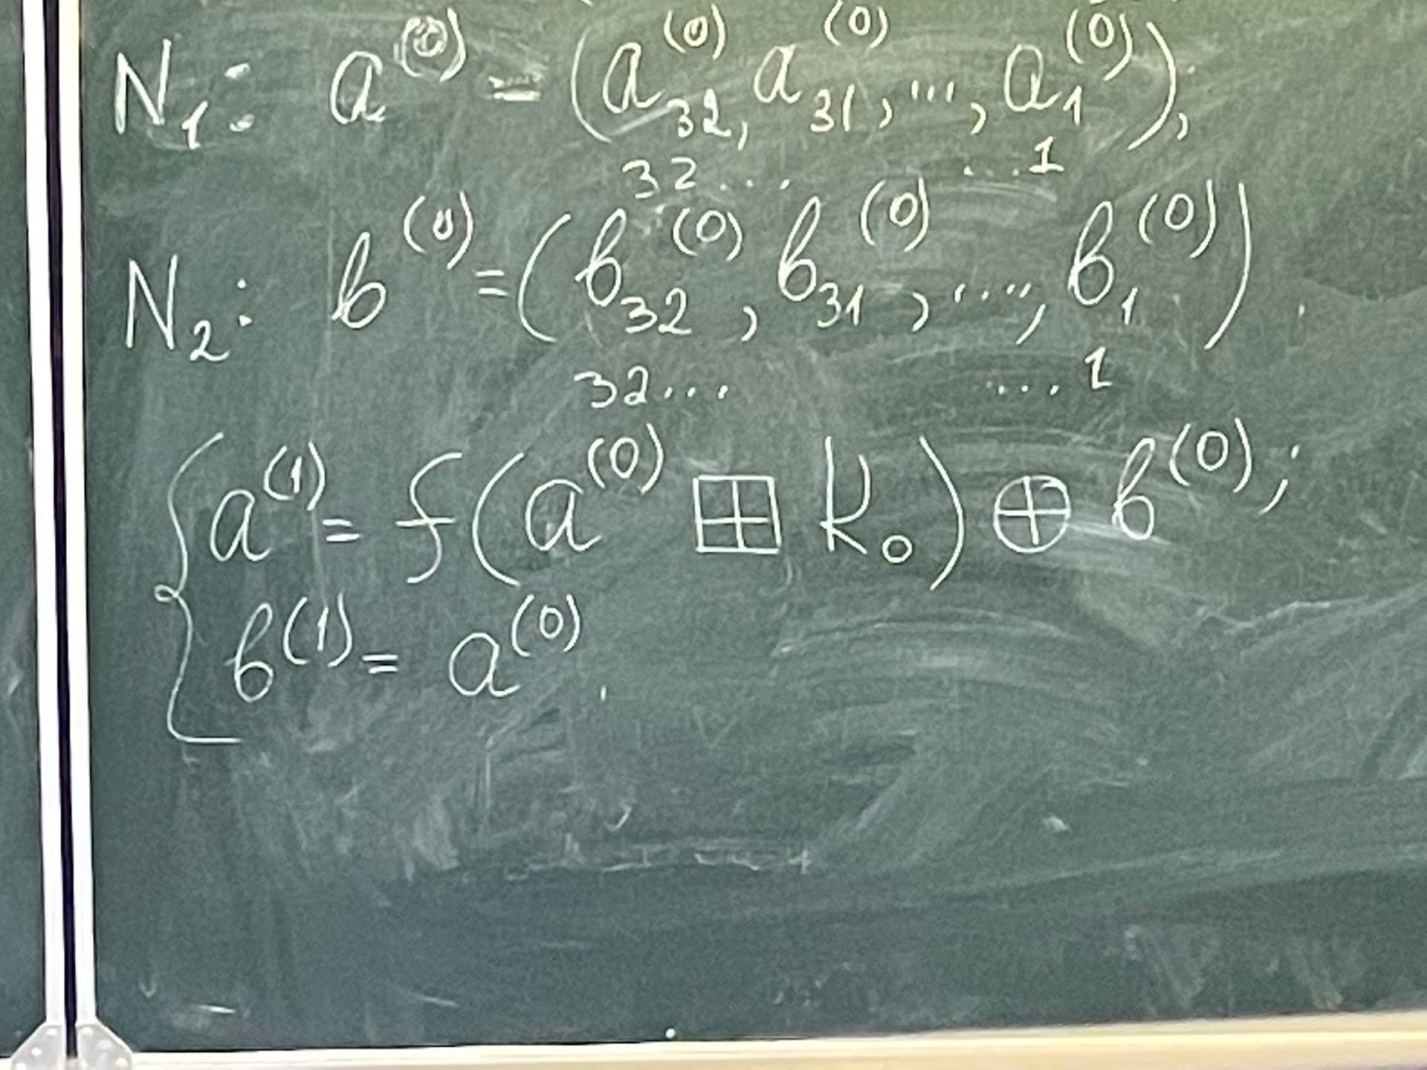 N₁: a⁽⁰⁾ = (a₃₂⁽⁰⁾, a₃₁⁽⁰⁾, ..., a₁⁽⁰⁾);
32... ...1
N₂: b⁽⁰⁾ = (b₃₂⁽⁰⁾, b₃₁⁽⁰⁾, ..., b₁⁽⁰⁾).
32... ....1
{ a⁽¹⁾ = f(a⁽⁰⁾ ⊞ K₀) ⊕ b⁽⁰⁾;
b⁽¹⁾ = a⁽⁰⁾.